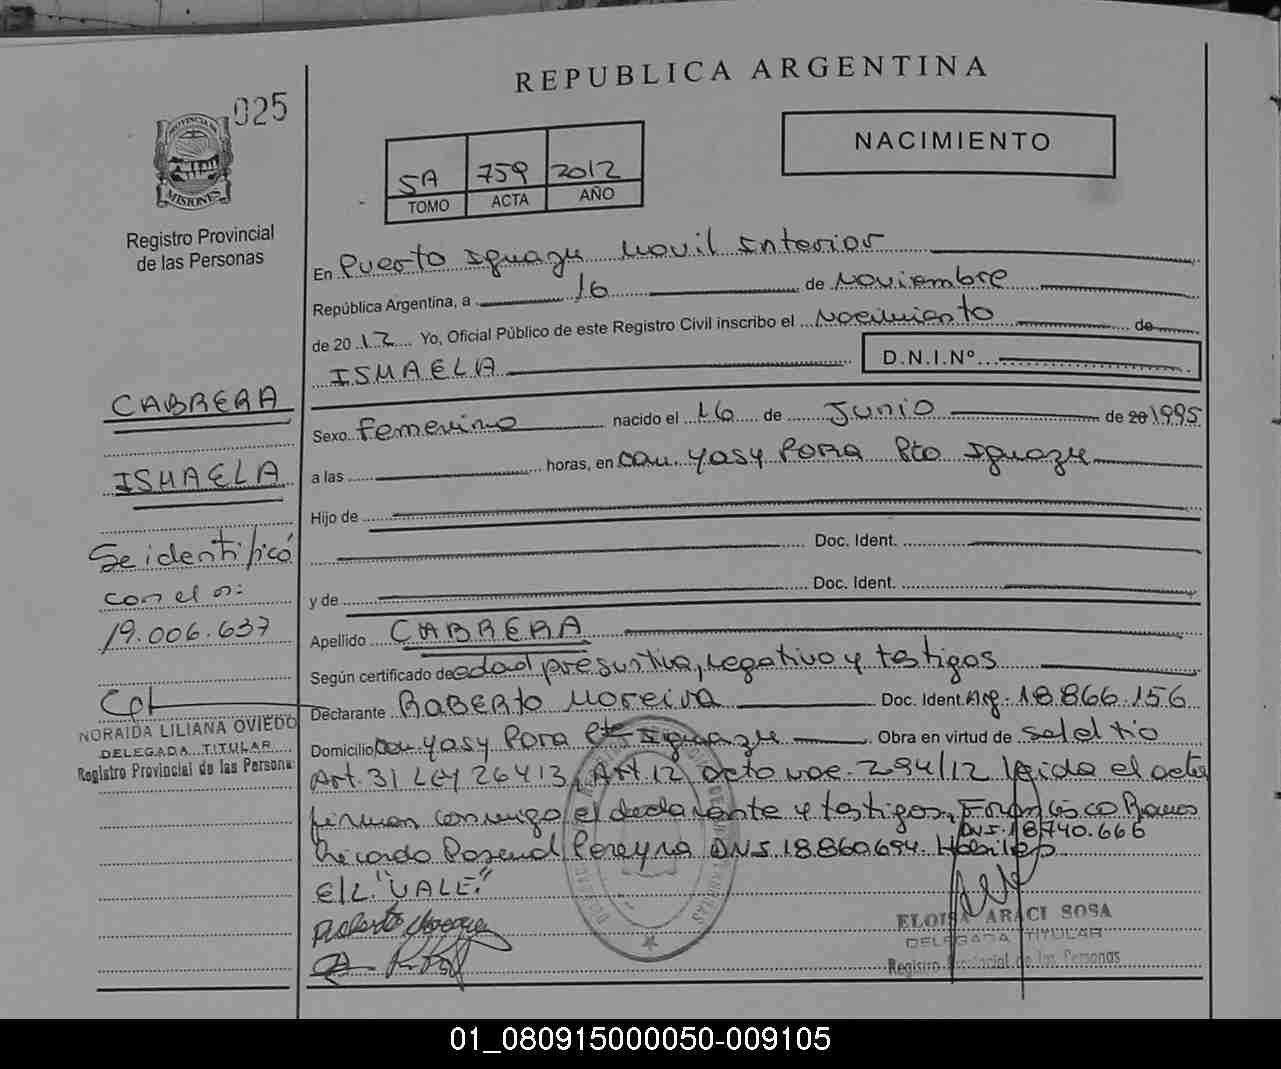 REPUBLICA ARGENTINA
025
NACIMIENTO
PROVINCIA DE
MISIONES
5A 759 2012
TOMO ACTA AÑO
Registro Provincial
de las Personas
En Puerto Iguazu Movil Interior
República Argentina, a 16 de Noviembre
de 2012 Yo, Oficial Público de este Registro Civil inscribo el Nacimiento de
ISMAELA D.N.I.Nº
CABRERA
ISMAELA
Sexo Femenino nacido el 16 de Junio de 20 1995
a las horas, en Com. Yasy Pora Pto Iguazu
Hijo de
Doc. Ident.
y de Doc. Ident.
Apellido CABRERA
Se identificó
con el n:
19.006.637
NORAIDA LILIANA OVIEDO
DELEGADA TITULAR
Registro Provincial de las Persona
Según certificado de edad presuntiva, negativo y testigos
Declarante Roberto Moreira Doc. Ident. Arg. 18.866.156
Domicilio Com. Yasy Pora Pto Iguazu Obra en virtud de ser el tio
Art. 31 Ley 26413, Art. 12 Dcto nac. 294/12 leida el acta
firman conmigo el declarante y testigos, Francisco Ramos
DNI. 18740.666
Ricardo Pereyra DNI 18.860.694. Habiles
E/L. "VALE."
ELOISA ARACI SOSA
DELEGADA TITULAR
Registro Provincial de las Personas
01_080915000050-009105